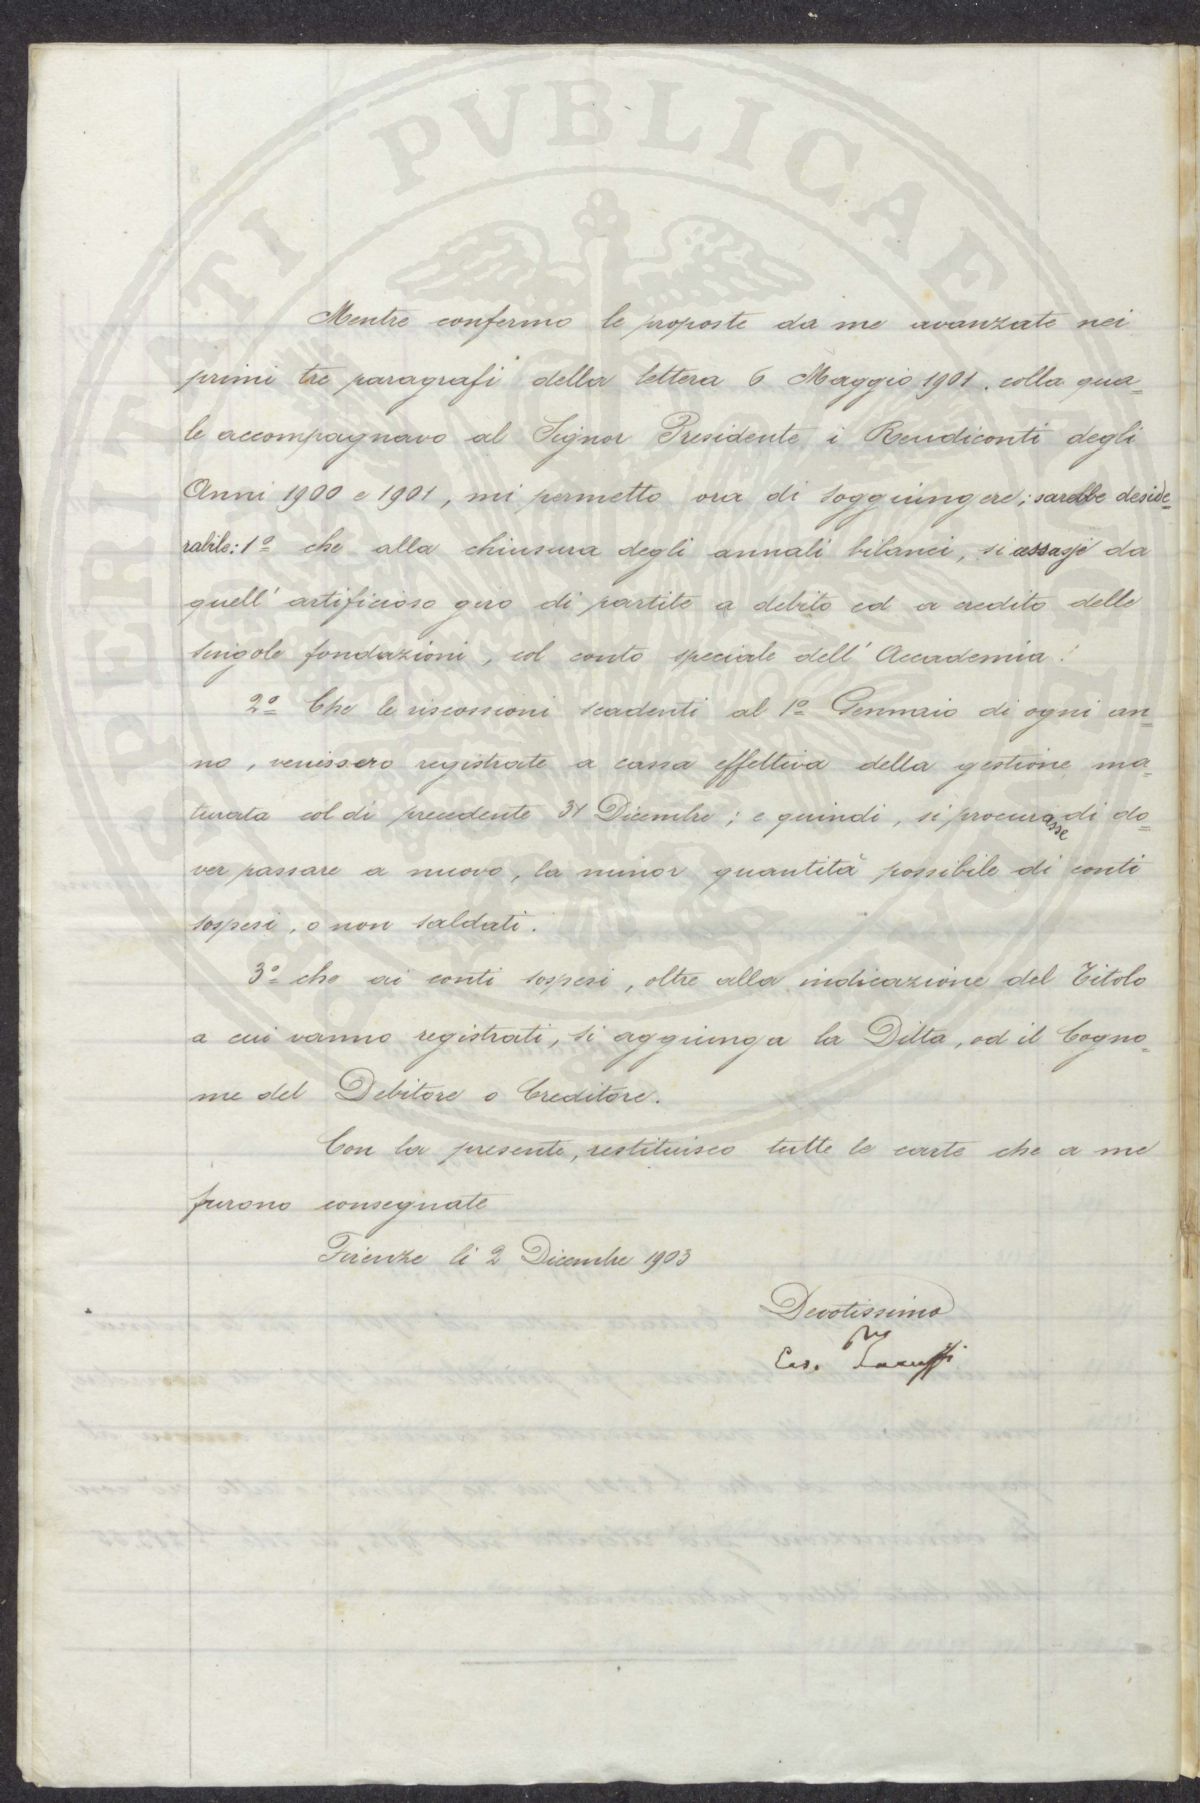 PROSPERITATI PVBLICAE AVGENDAE
Mentre confermo le proposte da me avanzate nei
primi tre paragrafi della lettera 6 Maggio 1901, colla qua=
le accompagnavo al Signor Presidente i Rendiconti degli
Anni 1900 e 1901, mi permetto ora di soggiungere; sarebbe deside=
rabile: 1º che alla chiusura degli annali bilanci, si da
quell' artificioso giro di partite a debito ed a credito delle
singole fondazioni, col conto speciale dell' Accademia.
2º Che le riscossioni scadenti al 1º Gennaio di ogni an=
no, venissero registrate a cassa effettiva della gestione ma=
turata col dì precedente 31 Dicembre; e quindi, si procurasse di do=
ver passare a nuovo, la minor quantità possibile di conti
sospesi, o non saldati.
3º che ai conti sospesi, oltre alla indicazione del Titolo
a cui vanno registrati, si aggiunga la Ditta, od il Cogno=
me del Debitore o Creditore.
Con la presente, restituisco tutte le carte che a me
furono consegnate
Firenze li 2 Dicembre 1903
Devotissimo